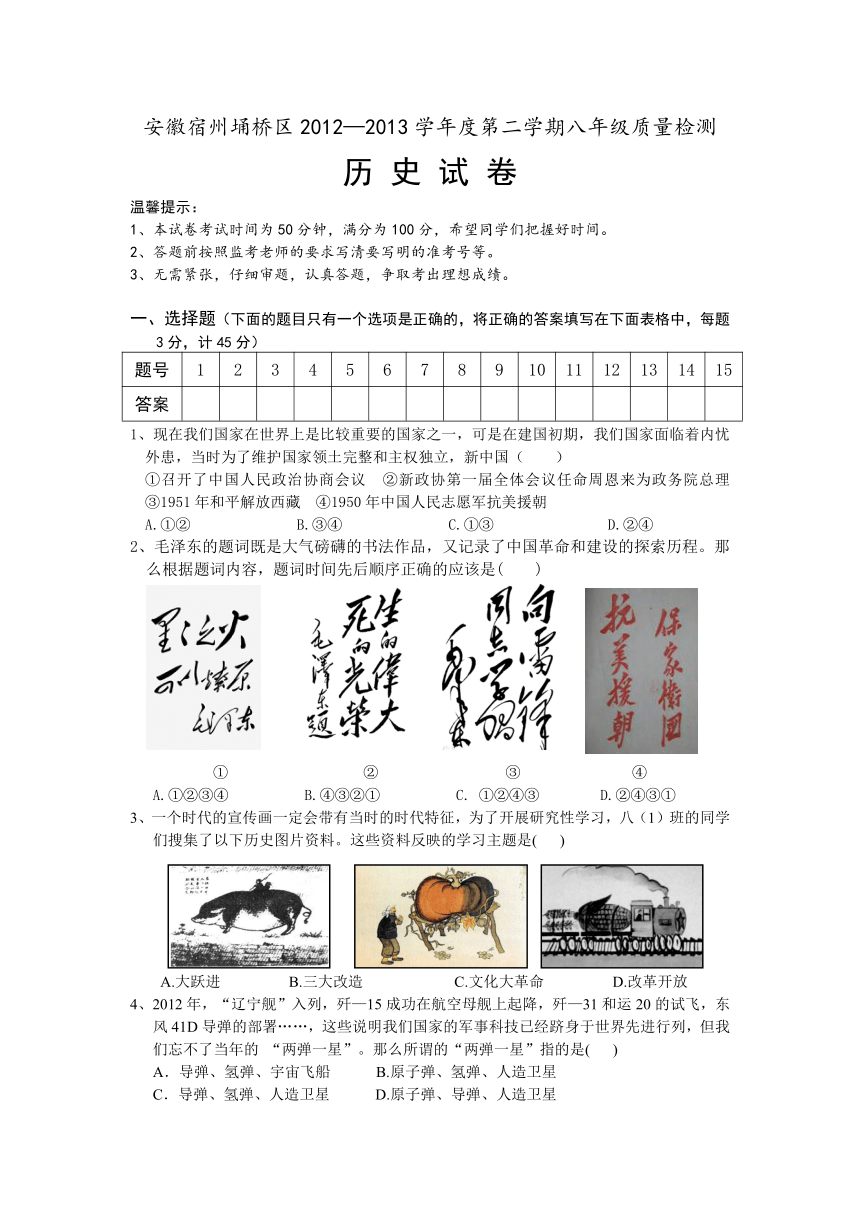 安徽宿州埇桥区2012—2013学年度第二学期八年级质量检测
历 史 试 卷
温馨提示：
1、本试卷考试时间为50分钟，满分为100分，希望同学们把握好时间。
2、答题前按照监考老师的要求写清要写明的准考号等。
3、无需紧张，仔细审题，认真答题，争取考出理想成绩。
一、选择题（下面的题目只有一个选项是正确的，将正确的答案填写在下面表格中，每题
3分，计45分）
题号 1 2 3 4 5 6 7 8 9 10 11 12 13 14 15
答案
1、现在我们国家在世界上是比较重要的国家之一，可是在建国初期，我们国家面临着内忧
外患，当时为了维护国家领土完整和主权独立，新中国（　　）
①召开了中国人民政治协商会议 ②新政协第一届全体会议任命周恩来为政务院总理
③1951年和平解放西藏 ④1950年中国人民志愿军抗美援朝
A.①② B.③④ C.①③ D.②④
2、毛泽东的题词既是大气磅礴的书法作品，又记录了中国革命和建设的探索历程。那
么根据题词内容，题词时间先后顺序正确的应该是(　　)
星星之火
可以燎原
毛泽东
生的偉大
死的光榮
毛澤东題
向雷锋
同志学習
毛泽东
保家衛國
抗美援朝
① ② ③ ④
A.①②③④ B.④③②① C. ①②④③ D.②④③①
3、一个时代的宣传画一定会带有当时的时代特征，为了开展研究性学习，八（1）班的同学
们搜集了以下历史图片资料。这些资料反映的学习主题是(　　)
A.大跃进 B.三大改造 C.文化大革命 D.改革开放
4、2012年，“辽宁舰”入列，歼—15成功在航空母舰上起降，歼—31和运20的试飞，东
风41D导弹的部署……，这些说明我们国家的军事科技已经跻身于世界先进行列，但我
们忘不了当年的 “两弹一星”。那么所谓的“两弹一星”指的是(　　)
A．导弹、氢弹、宇宙飞船 B.原子弹、氢弹、人造卫星
C．导弹、氢弹、人造卫星 D.原子弹、导弹、人造卫星